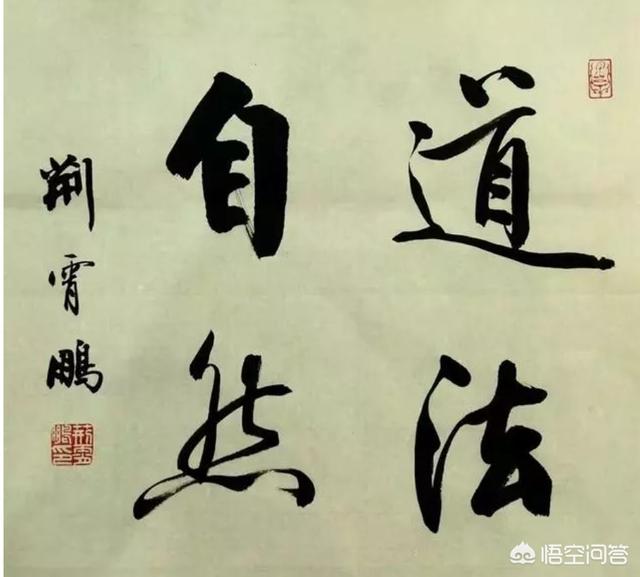 道法
自然
荆霄鹏
悟空问答